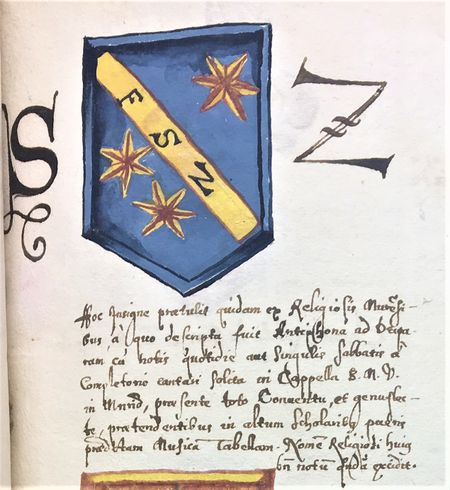 S
Z
F S Z
Hoc Insigne prætulit quidam ex Religiosis Murēsi-
bus, à quo descripta fuit Antephona ad
ram cū notis quotidie aut singulis sabbatis à
Completorio cantari solita in Cappella B. M. V.
in præsente toto Conventu, et genuflec-
te, prætendentibus in altum Scholaribus
Musica Tabellam. Nomē Religiosi huiȷ
notum excidit.